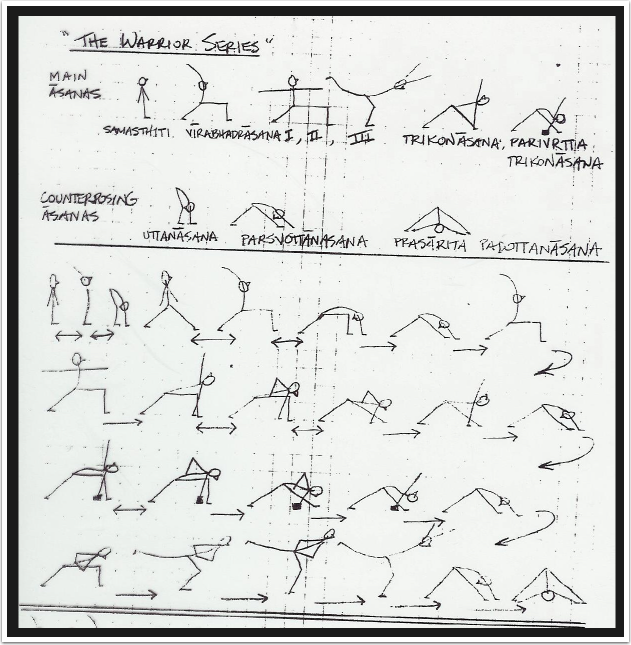 "THE WARRIOR SERIES"
MAIN
ĀSANAS
SAMASTHITI VĪRABHADRĀSANA I, II, III TRIKONĀSANA, PARIVRTTA
TRIKONĀSANA
COUNTERPOSING
ĀSANAS
UTTANĀSANA PARSVOTTĀNASANA PRASĀRITA PADOTTANĀSANA